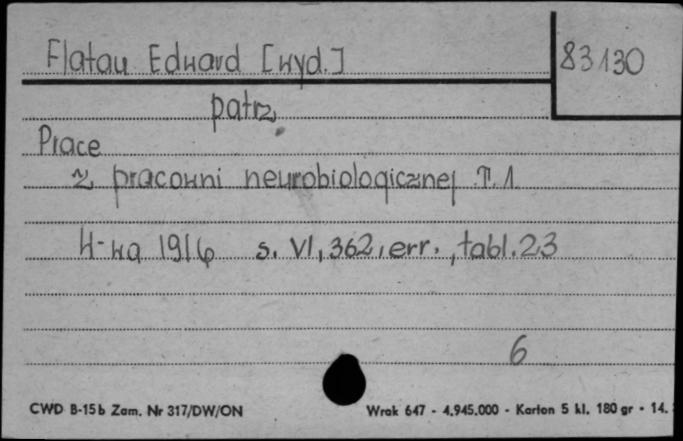 Flatau Edward [wyd.]
83130
patrz
Prace
z pracowni neurobiologicznej T. 1.
W-wa 1916 s. VI, 362, err., tabl. 23
6
CWD B-15b Zam. Nr 317/DW/ON
Wrak 647 - 4.945.000 - Karton 5 kl. 180 gr - 14.